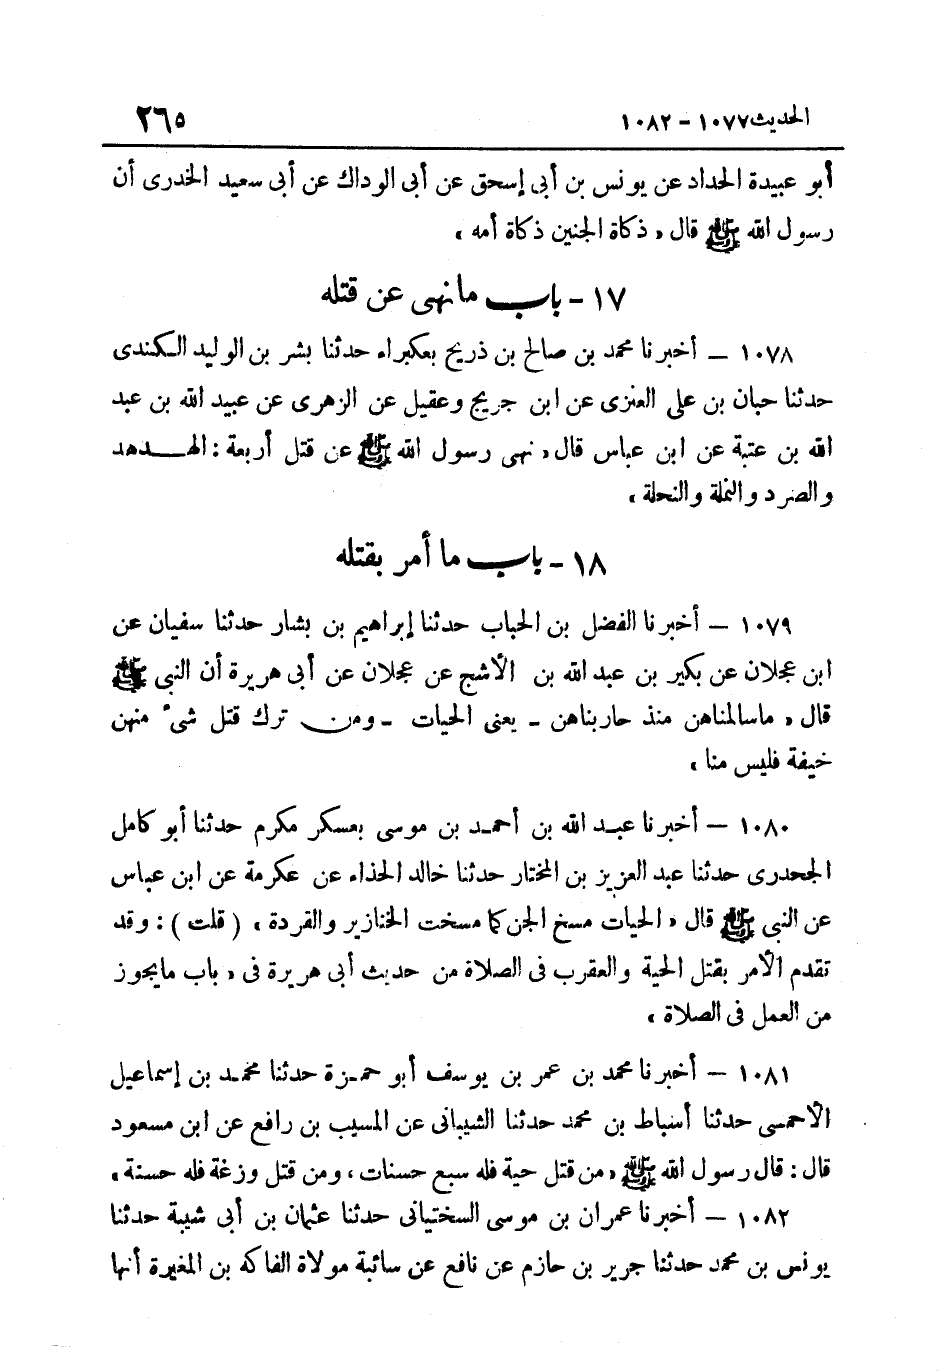 الحديث ١٠٧٧ - ١٠٨٢
٢٦٥
أبو عبيدة الحداد عن يونس بن أبى إسحق عن أبى الوداك عن أبى سعيد الخدرى أن
رسول الله ﷺ قال « ذكاة الجنين ذكاة أمه »
١٧ - باب ما نهى عن قتله
١٠٧٨ – أخبرنا محمد بن صالح بن ذريح بعكبراء حدثنا بشر بن الوليد الكندى
حدثنا حبان بن على العنزى عن ابن جريج وعقيل عن الزهرى عن عبيد الله بن عبد
الله بن عتبة عن ابن عباس قال « نهى رسول الله ﷺ عن قتل أربعة : الهدهد
والصرد والنملة والنحلة »
١٨ - باب ما أمر بقتله
١٠٧٩ – أخبرنا الفضل بن الحباب حدثنا إبراهيم بن بشار حدثنا سفيان عن
ابن عجلان عن بكير بن عبد الله بن الأشج عن عجلان عن أبى هريرة أن النبى ﷺ
قال « ماسالمناهن منذ حاربناهن - يعنى الحيات - ومن ترك قتل شىء منهن
خيفة فليس منا »
١٠٨٠ – أخبرنا عبد الله بن أحمد بن موسى بعسكر مكرم حدثنا أبو كامل
الجحدرى حدثنا عبد العزيز بن المختار حدثنا خالد الحذاء عن عكرمة عن ابن عباس
عن النبى ﷺ قال « الحيات مسخ الجن كما مسخت الخنازير والقردة » ( قلت ) : وقد
تقدم الأمر بقتل الحية والعقرب فى الصلاة من حديث أبى هريرة فى « باب مايجوز
من العمل فى الصلاة »
١٠٨١ – أخبرنا محمد بن عمر بن يوسف أبو حمزة حدثنا محمد بن إسماعيل
الأحمسى حدثنا أسباط بن محمد حدثنا الشيبانى عن المسيب بن رافع عن ابن مسعود
قال : قال رسول الله ﷺ « من قتل حية فله سبع حسنات ، ومن قتل وزغة فله حسنة »
١٠٨٢ – أخبرنا عمران بن موسى السختيانى حدثنا عثمان بن أبى شيبة حدثنا
يونس بن محمد حدثنا جرير بن حازم عن نافع عن سائبة مولاة الفاكه بن المغيرة أنها